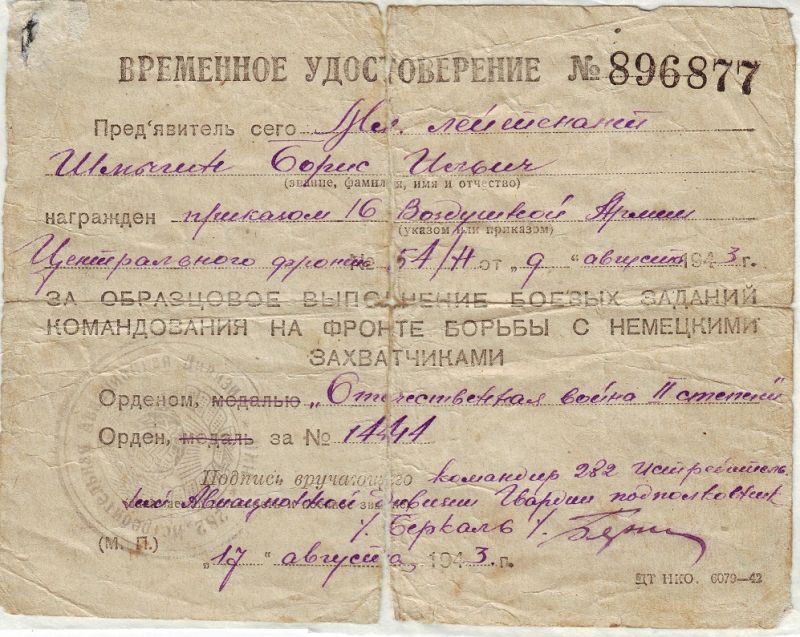 ВРЕМЕННОЕ УДОСТОВЕРЕНИЕ № 896877
Пред'явитель сего Мл. лейтенант
Шмычин Борис Ильич
(звание, фамилия, имя и отчество)
награжден приказом 16 Воздушной Армии
(указом или приказом)
Центрального фронта № 54/Н от „9“ августа 1943 г.
ЗА ОБРАЗЦОВОЕ ВЫПОЛНЕНИЕ БОЕВЫХ ЗАДАНИЙ
КОМАНДОВАНИЯ НА ФРОНТЕ БОРЬБЫ С НЕМЕЦКИМИ
ЗАХВАТЧИКАМИ
Орденом, медалью „Отечественная война II степени“
Орден, медаль за № 14441
Подпись вручающего командир 282 истребитель
ной Авиационной дивизии Гвардии подполковник
/Беркаль/.
(М. П.)
„17“ августа 1943 г.
ЦТ НКО. 6079—42